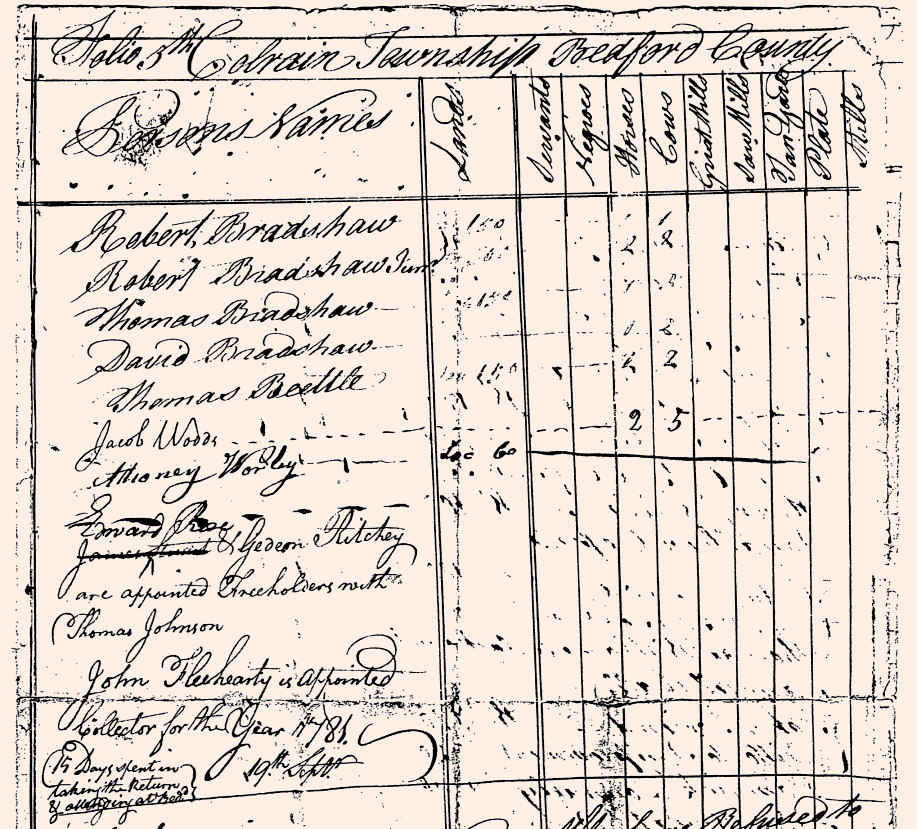 Folio 5th Colrain Township Bedford County
Persons Names Lands Servants Negroes Horses Cows Grist Mills Saw Mills Tan Yards Plate Stills
Robert Bradshaw 150 2 2
Robert Bradshaw Junr
Thomas Bradshaw
David Bradshaw 2 2
Thomas Beettle 150
Jacob Woods 2 5
Anthoney Worley 60
Edward Rose
& Gedeon Ritchey
are appointed Freeholders with
Thomas Johnson
John Fleehearty is appointed
Collector for the Year 1781.
15 Days spent in 19th Septr
taking the Return
& attending at Bedd
Refused to